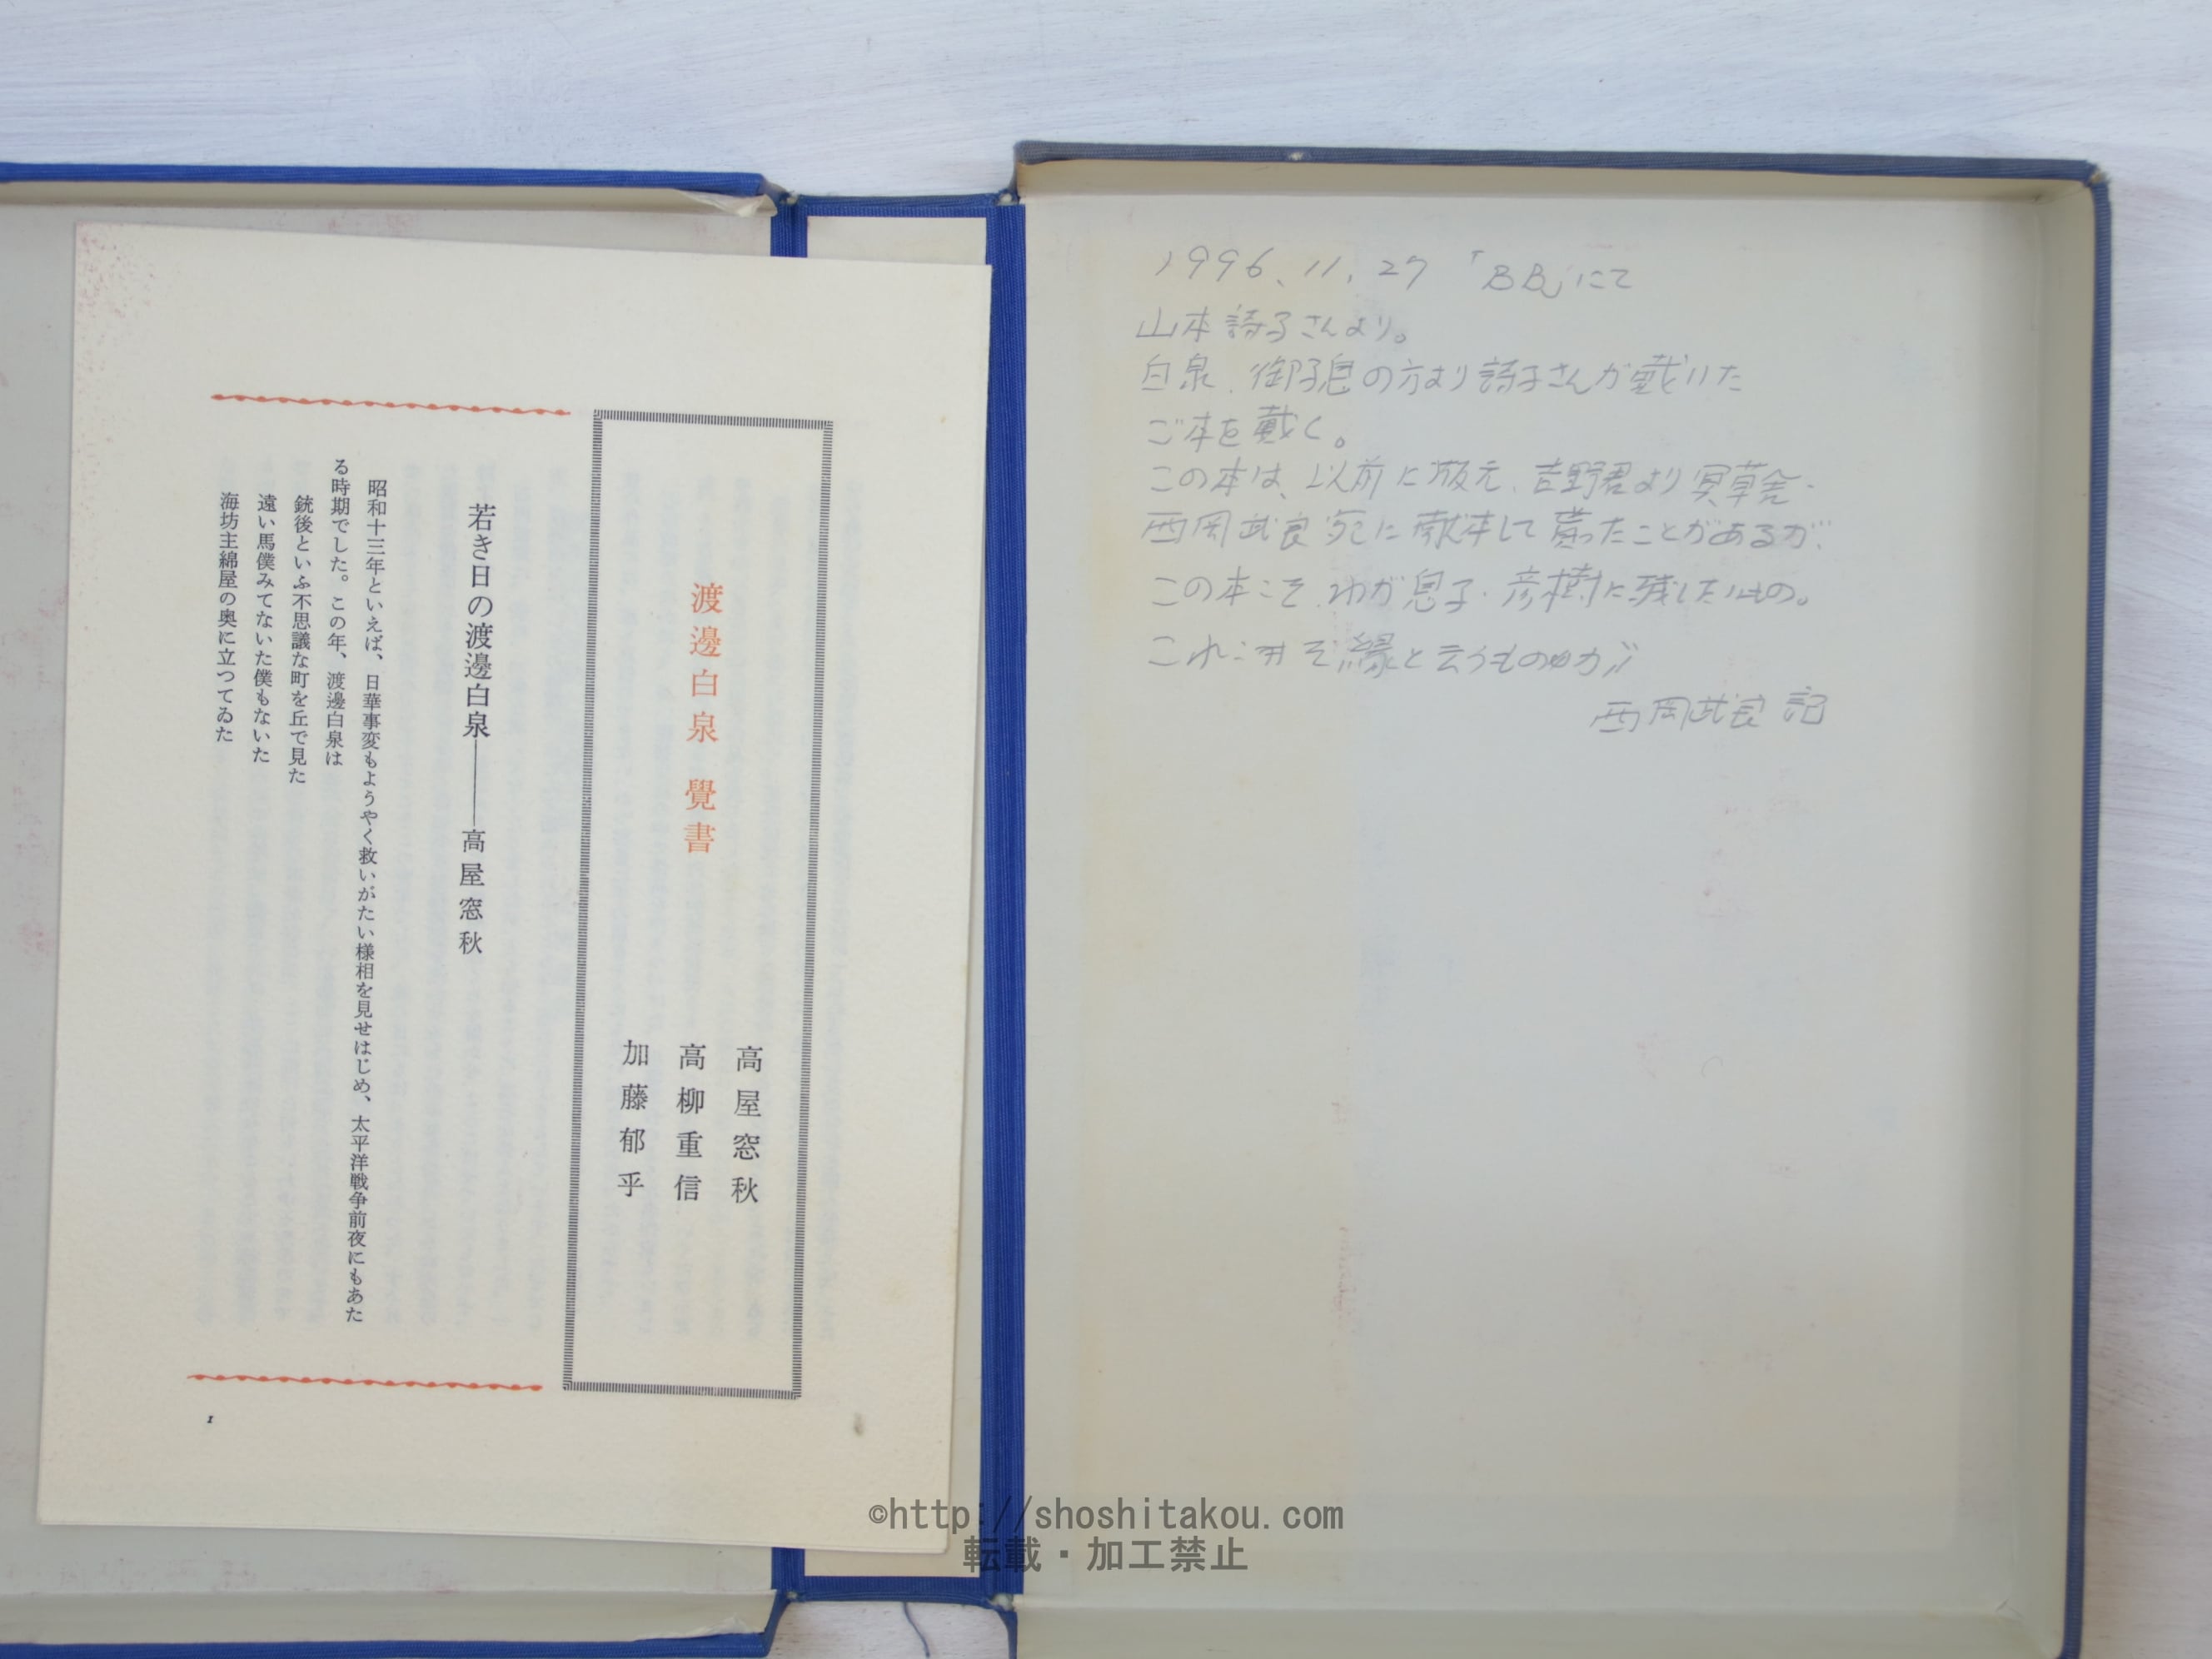 渡邊白泉 覺書
高屋窓秋
高柳重信
加藤郁乎
若き日の渡邊白泉――高屋窓秋
昭和十三年といえば、日華事変もようやく救いがたい様相を見せはじめ、太平洋戦争前夜にもあた
る時期でした。この年、渡邊白泉は
銃後といふ不思議な町を丘で見た
遠い馬僕みてないた僕もないた
海坊主綿屋の奥に立つてゐた
1
1996、11、27 「BB」にて
山本詩子さんより。
白泉、御子息の方より詩子さんが戴いた
ご本を戴く。
この本は、以前に版元、吉野君より冥草舎・
西岡武良宛に献本して貰ったことがあるが、
この本こそ、わが息子・彦樹に残したいもの。
これこそ縁と云うものか
西岡武良 記
©http://shoshitakou.com
転載・加工禁止